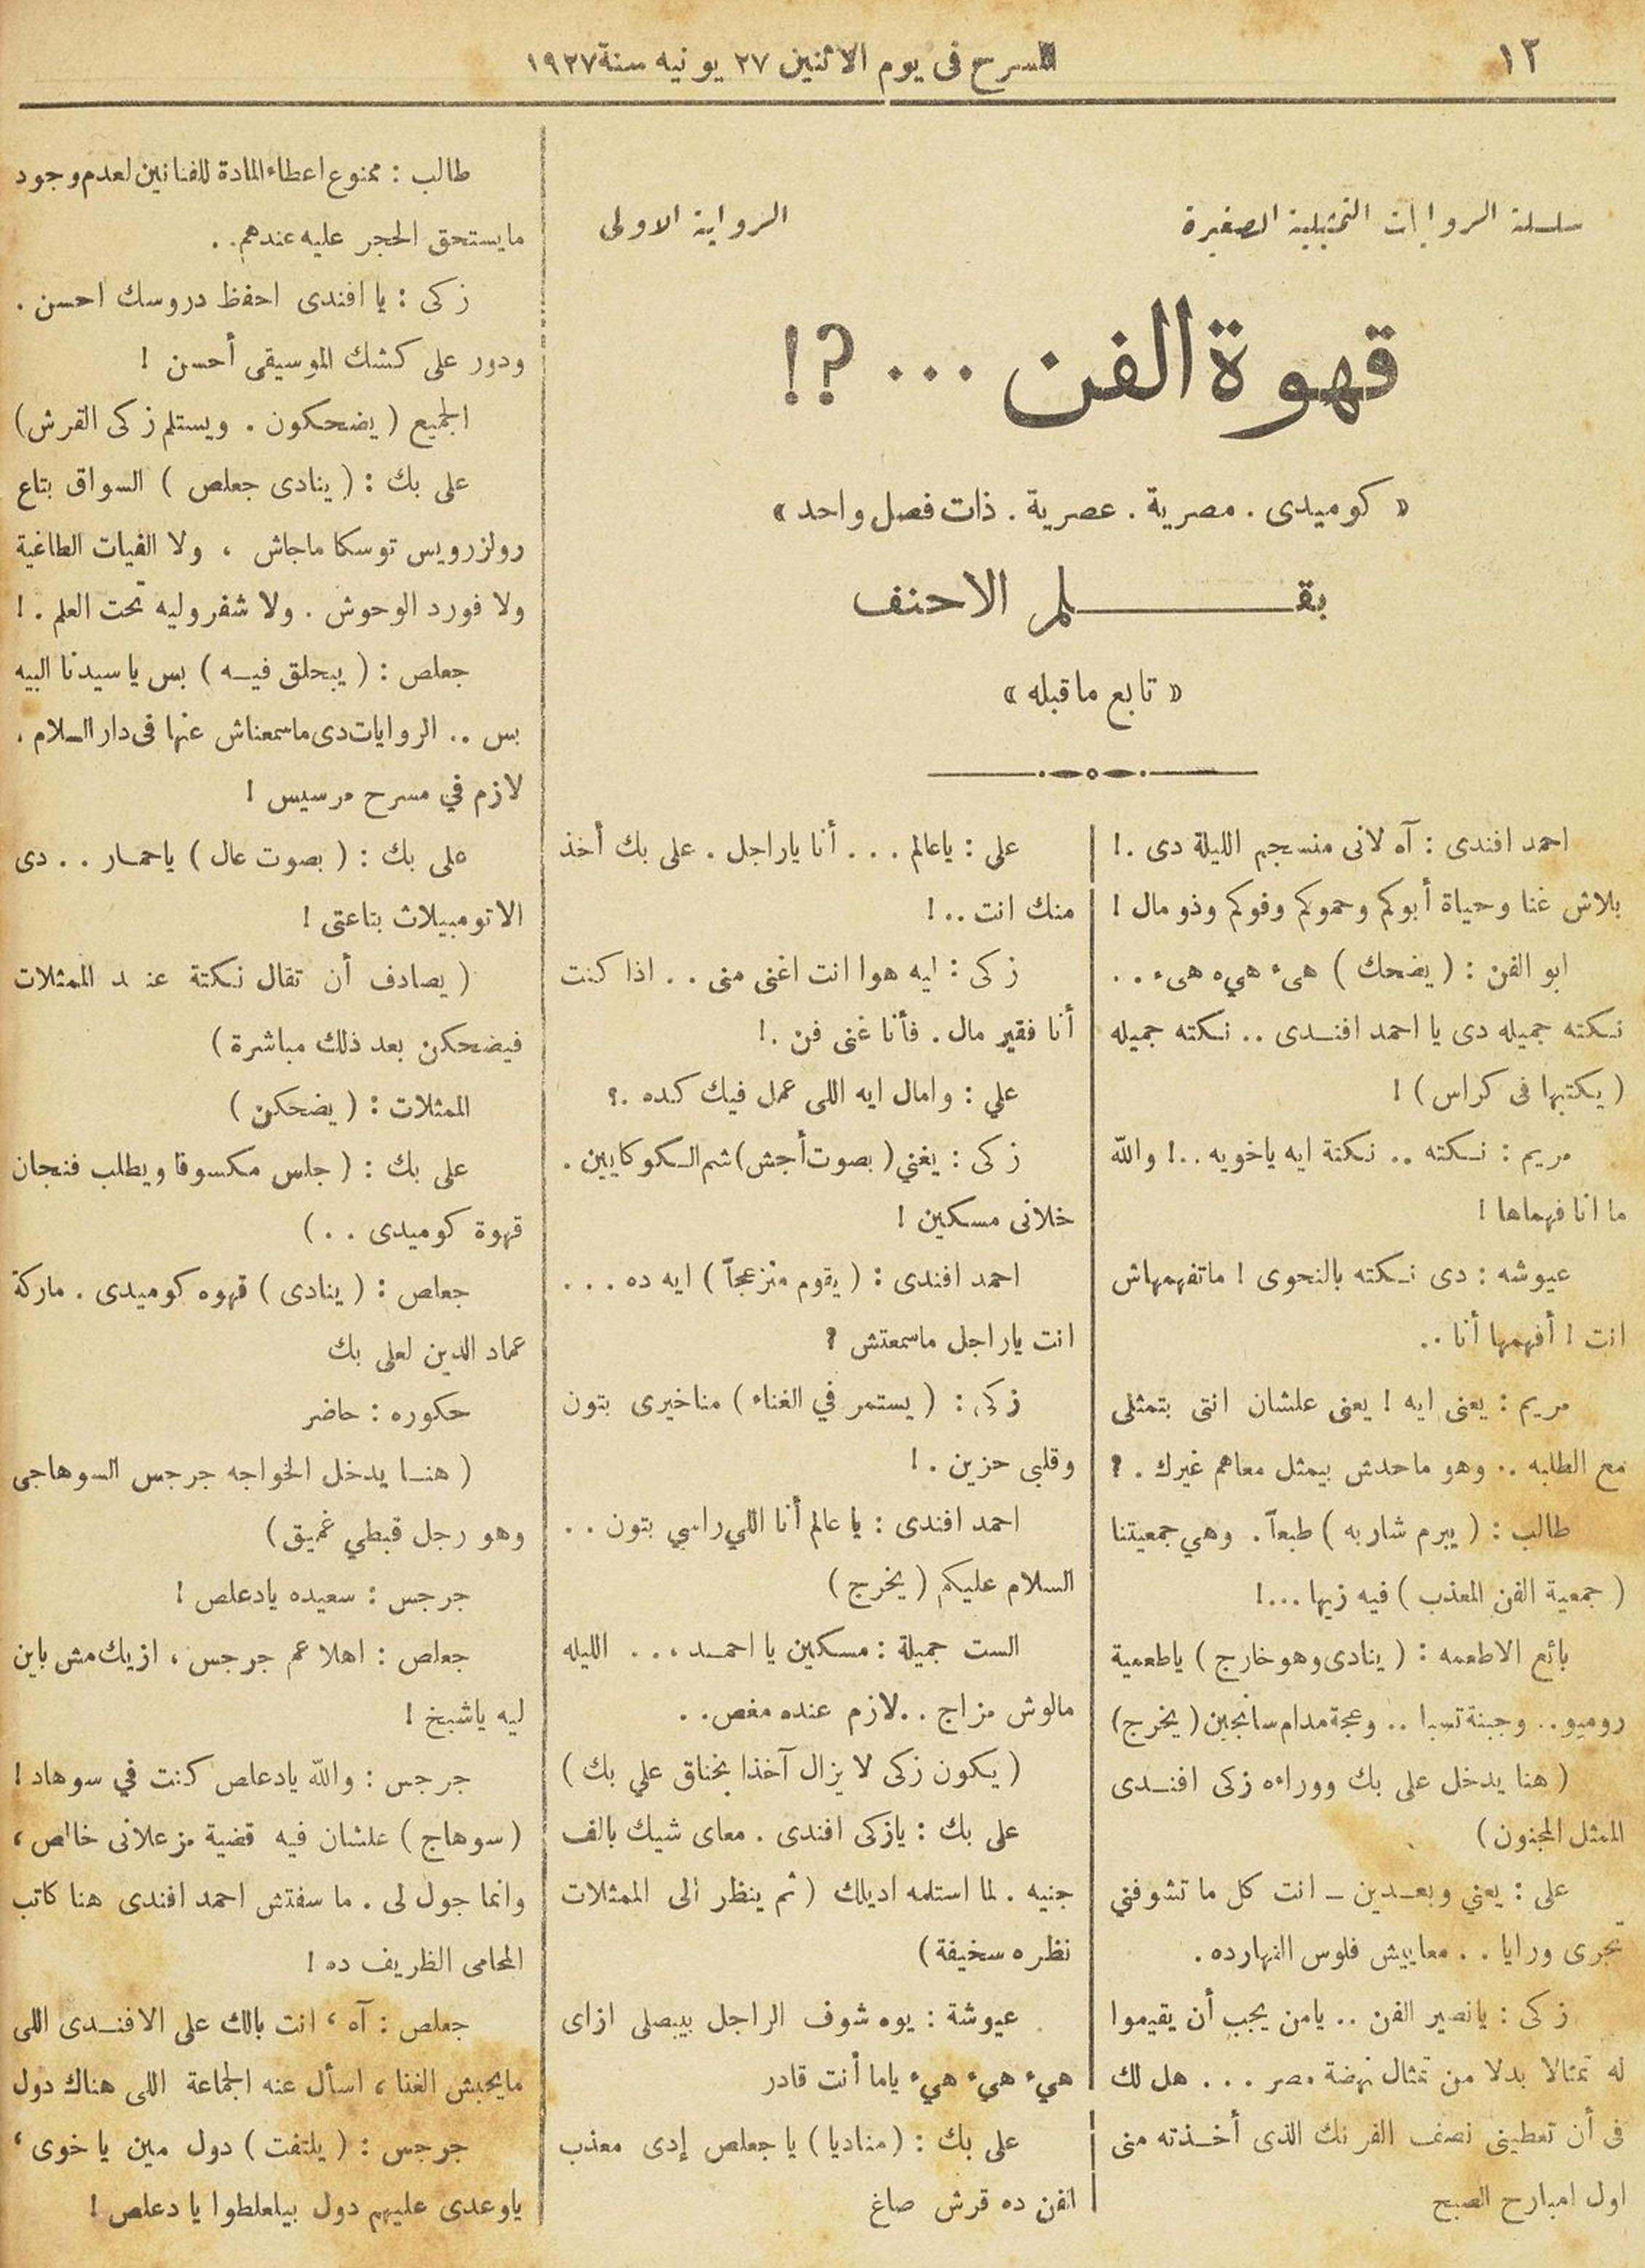 ١٢
المسرح فى يوم الاثنين ٢٧ يونيه سنة ١٩٢٧
سلسلة الروايات التمثيلية الصغيرة
الرواية الاولى
قهوة الفن ... ؟!
« كوميدى . مصرية . عصرية . ذات فصل واحد »
بقـــلم الاحنف
« تابع ماقبله »
احمد افندى : آه لانى منسجم الليلة دى .!
بلاش غنا وحياة أبوكم وحموكم وفوكم وذو مال !
ابو الفن : ( يضحك ) هىء هىء هىء . .
نكته جميله دى يا احمد افندى .. نكته جميله
( يكتبها فى كراس ) !
مريم : نكته .. نكتة ايه ياخويه ..! والله
ما انا فهماها !
عيوشه : دى نكته بالنحوى ! ماتفهمهاش
انت ! أفهمها أنا ..
مريم : يعنى ايه ! يعنى علشان انتى بتمثلى
مع الطلبه .. وهو ماحدش بيمثل معاهم غيرك . ؟
طالب : ( يبرم شاربه ) طبعاً . وهي جمعيتنا
( جمعية الفن المعذب ) فيه زيها ...!
بائع الاطعمه : ( ينادى وهو خارج ) ياطعمية
روميو .. وجبنة تسبا .. وعجة مدام سانجين ( يخرج )
( هنا يدخل على بك ووراءه زكى افندى
الممثل المجنون )
على : يعني وبعدين ـ انت كل ما تشوفني
تجرى ورايا . . معاييش فلوس النهارده .
زكى : يانصير الفن .. يامن يجب أن يقيموا
له تمثالا بدلا من تمثال نهضة مصر ... هل لك
فى أن تعطينى نصف الفرنك الذى أخذته منى
اول امبارح الصبح
على : ياعالم ... أنا ياراجل . على بك أخذ
منك انت ..!
زكى : ليه هوا انت اغنى منى . . اذا كنت
أنا فقير مال . فأنا غنى فن .!
علي : وامال ايه اللى عمل فيك كده .؟
زكى : يغني ( بصوت أجش ) شم الكوكايين .
خلانى مسكين !
احمد افندى : ( يقوم منزعجاً ) ايه ده ...
انت ياراجل ماسمعتش ؟
زكى : ( يستمر في الغناء ) مناخيرى بتون
وقلبى حزين .!
احمد افندى : يا عالم أنا اللي راسي بتون ..
السلام عليكم ( يخرج )
الست جميلة : مسكين يا احمد ، .. الليله
مالوش مزاج .. لازم عنده مغص ..
( يكون زكى لا يزال آخذا بخناق علي بك )
على بك : يازكى افندى . معاى شيك بالف
جنيه . لما استلمه اديلك ( ثم ينظر الى الممثلات
نظره سخيفة )
عيوشة : يوه شوف الراجل بيبصلى ازاى
هيء هيء هيء ياما أنت قادر
على بك : ( مناديا ) يا جعلص إدى معذب
الفن ده قرش صاغ
طالب : ممنوع اعطاء المادة للفنانين لعدم وجود
مايستحق الحجر عليه عندهم ..
زكى : يا افندى احفظ دروسك احسن .
ودور على كشك الموسيقى أحسن !
الجميع ( يضحكون . ويستلم زكى القرش )
على بك : ( ينادى جعلص ) السواق بتاع
رولزرويس توسكا ماجاش ، ولا الفيات الطاغية
ولا فورد الوحوش . ولا شفروليه تحت العلم .!
جعلص : ( يبحلق فيه ) بس يا سيدنا البيه
بس .. الروايات دى ماسمعناش عنها فى دار السلام .
لازم في مسرح مرسيس !
على بك : ( بصوت عال ) ياحمار .. دى
الاتومبيلات بتاعتى !
( يصادف أن تقال نكتة عند الممثلات
فيضحكن بعد ذلك مباشرة )
الممثلات : ( يضحكن )
على بك : ( جلس مكسوفا ويطلب فنجان
قهوة كوميدى . . )
جعلص : ( ينادى ) قهوه كوميدى . ماركة
عماد الدين لعلى بك
حكوره : حاضر
( هنا يدخل الخواجه جرجس السوهاجى
وهو رجل قبطي غميق )
جرجس : سعيده يادعلص !
جعلص : اهلا عم جرجس ، ازيك مش باين
ليه ياشيخ !
جرجس : والله يادعلص كنت في سوهاد !
( سوهاج ) علشان فيه قضية مزعلانى خالص ،
وانما جول لى . ما سفتش احمد افندى هنا كاتب
المحامى الظريف ده !
جعلص : آه ، انت بالك على الافندى اللى
مايحبش الغنا ، اسأل عنه الجماعة اللى هناك دول
جرجس : ( يلتفت ) دول مين يا خوى ،
ياوعدى عليهم دول بيلعلطوا يا دعلص !